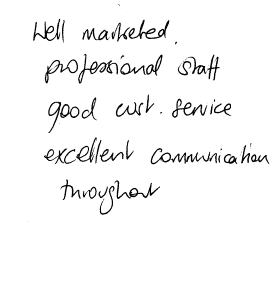 Well marketed.
professional staff
good cust. service
excellent communication
throughout